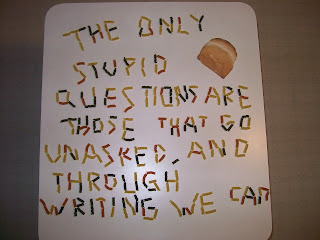 THE ONLY
STUPID
QUESTIONS ARE
THOSE THAT GO
UNASKED, AND
THROUGH
WRITING WE CAN